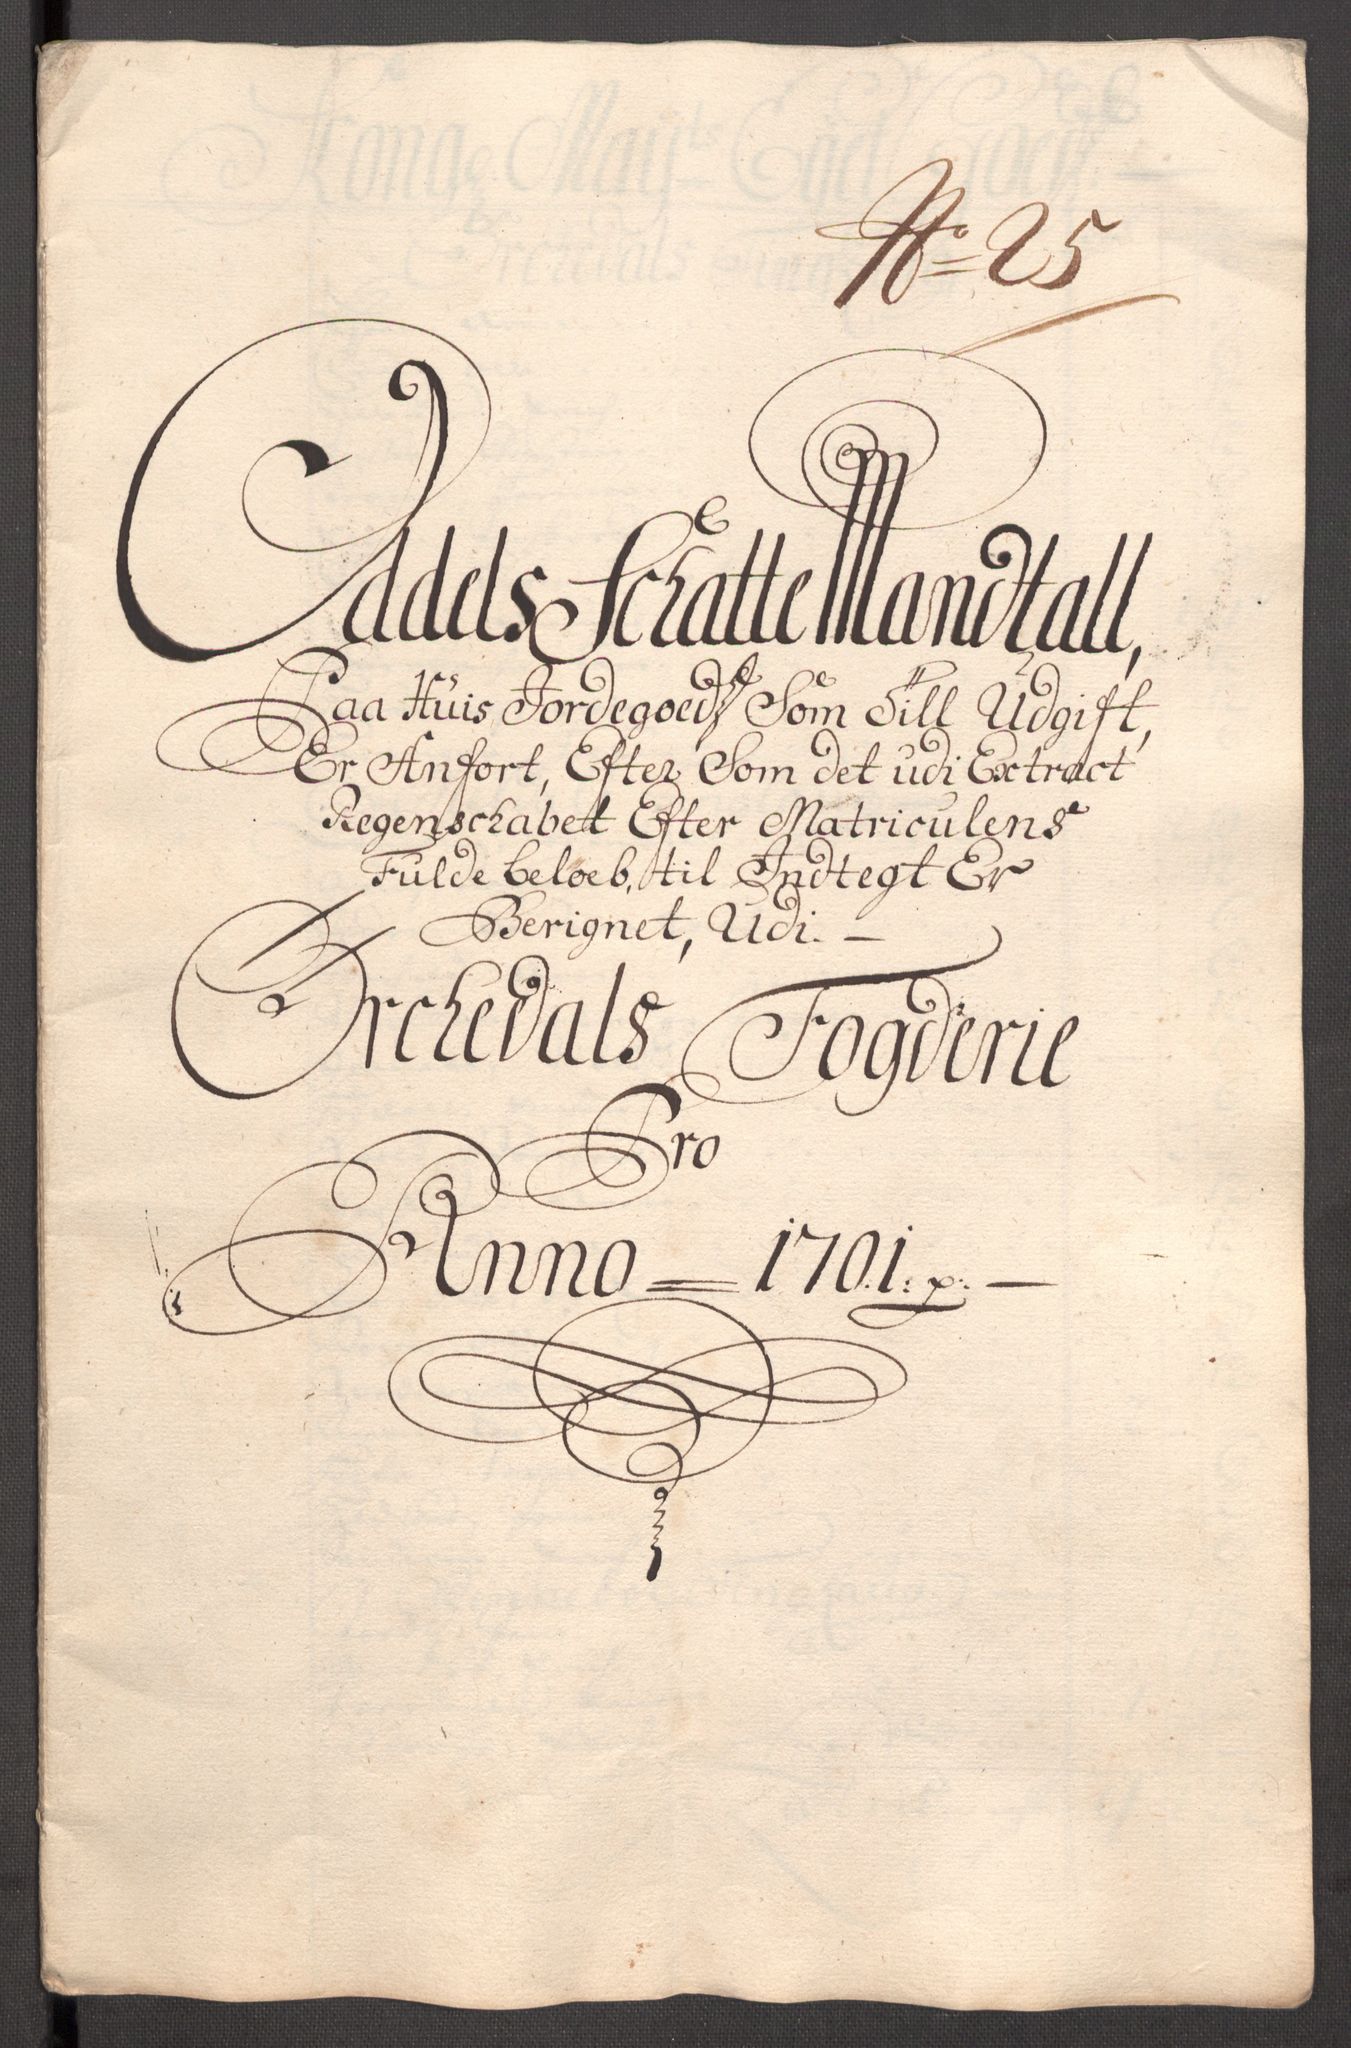 No. 25
Oddels Schatte Mandtall,
Paa Huis Jordegoedz Som Till Udgift,
Er Anfört, Efter Som det udi Extract
Regenschabet Efter Matriculens
Fulde beloeb, til Indtegt Er
Berignet, Udi. —
Orchedals Fogderie
Pro
Anno = 1701. p. —